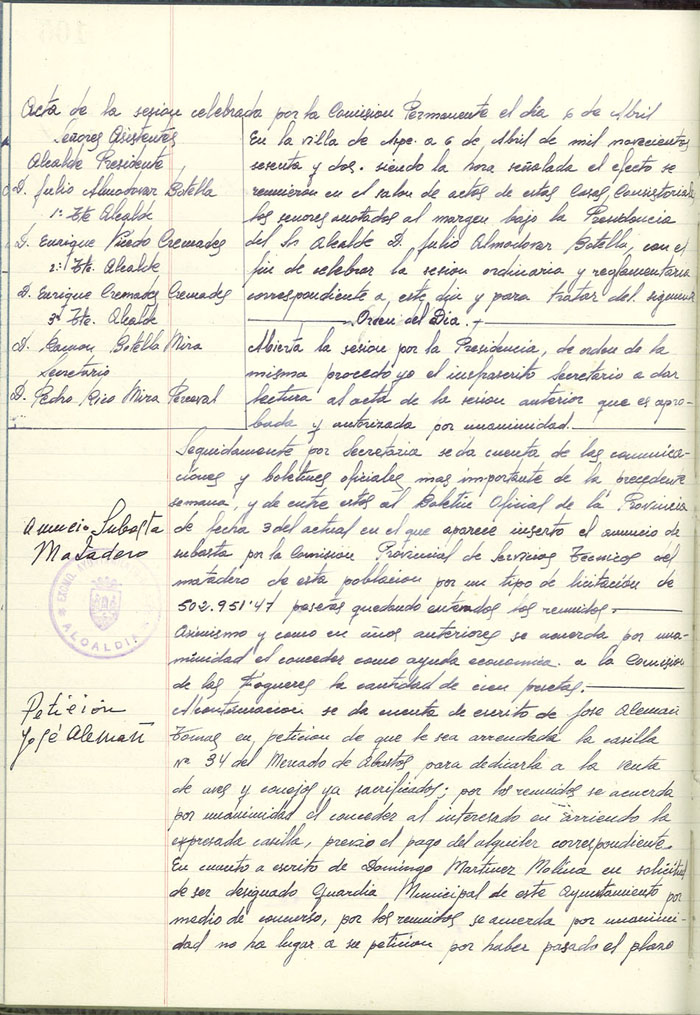 Acta de la sesion celebrada por la Comision Permanente el dia 6 de Abril
Señores Asistentes
Alcalde Presidente
D. Julio Almodovar Botella
1º Tte Alcalde
D. Enrique Puedo Cremades
2º Tte. Alcalde
D. Enrique Cremades Cremades
3º Tte. Alcalde
D. Ramon Botella Mira
Secretario
D. Pedro Rico Mira Perceval
En la villa de Aspe a 6 de Abril de mil novecientos
sesenta y dos. siendo la hora señalada el efecto se
reunieron en el salon de actos de estas Casas Consistoriales
los señores anotados al margen bajo la Presidencia
del Sr Alcalde D. Julio Almodovar Botella, con el
fin de celebrar la sesion ordinaria y reglamentaria
correspondiente a este dia y para tratar del siguiente
Orden del Dia.
Abierta la sesion por la Presidencia, de orden de la
misma procedo yo el infrascrito Secretario a dar
lectura al acta de la sesion anterior que es apro-
bada y autorizada por unanimidad.
Seguidamente por Secretaria se da cuenta de las comunica-
ciones y boletines oficiales mas importante de la precedente
semana, y de entre estos al Boletin Oficial de la Provincia
de fecha 3 del actual en el que aparece inserto el anuncio de
subasta por la Comision Provincial de Servicios Tecnicos del
matadero de esta poblacion por un tipo de licitación de
502.951'47 pesetas quedando enterados los reunidos.
Anuncio Subasta
Matadero
EXCMO. AYUNTAMIENTO
ALCALDIA
Asimismo y como en años anteriores se acuerda por una-
minidad el conceder como ayuda economica a la Comision
de las Fogueres la cantidad de cien pesetas.
Petición
José Alemañ
A continuacion se da cuenta de escrito de Jose Alemañ
Tomas en peticion de que le sea arrendada la casilla
nº 34 del Mercado de Abastos para dedicarla a la venta
de aves y conejos ya sacrificados; por los reunidos se acuerda
por unanimidad el conceder al interesado en arriendo la
expresada casilla, previo el pago del alquiler correspondiente.
En cuanto a escrito de Domingo Martinez Molina en solicitud
de ser designado Guardia Municipal de este Ayuntamiento por
medio de concurso, por los reunidos se acuerda por unanimi-
dad no ha lugar a su peticion por haber pasado el plazo